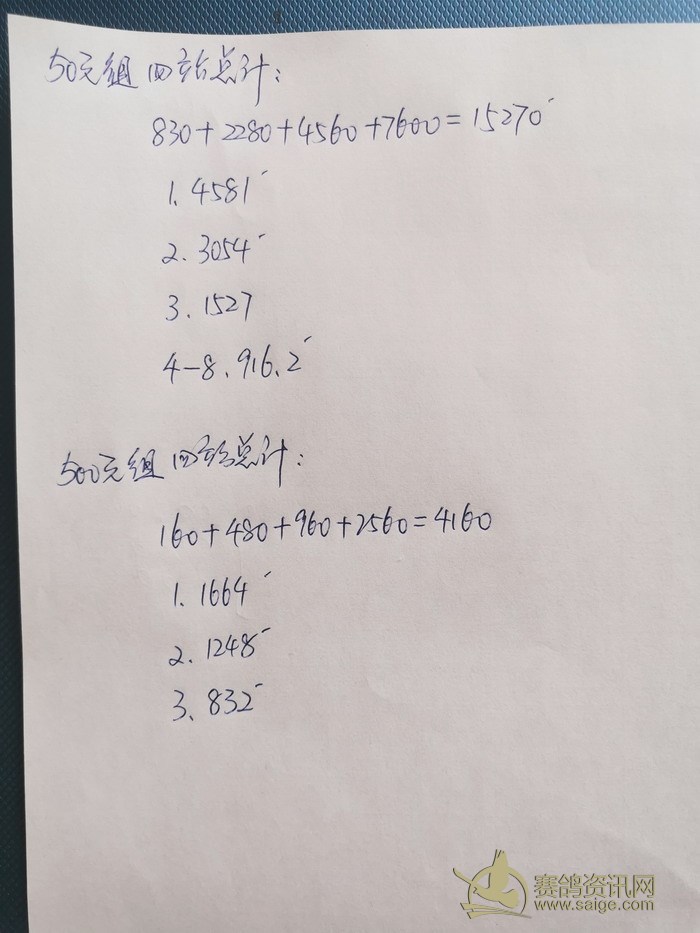 50元组四站总计：
830+2280+4560+7600=15270
1、4581
2、3054
3、1527
4-8、916.2
500元组四站总计：
160+480+960+2560=4160
1、1664
2、1248
3、832
赛鸽资讯网
www.saige.com